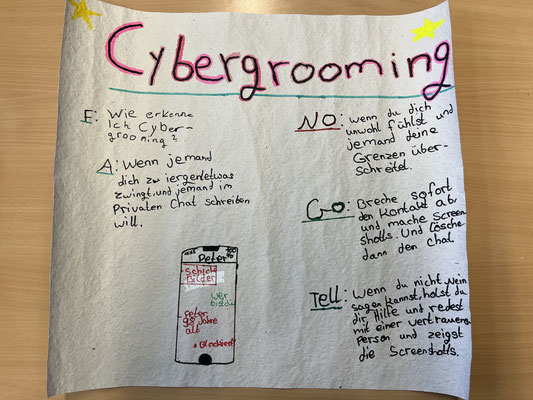 Cybergrooming
F: Wie erkenne
Ich Cyber-
grooming?
A: Wenn jemand
dich zu iergendetwas
zwingt, und jemand im
Privaten Chat schreiben
will.
Peter
Schick
Bilder
wer
bist du
Peter
Jahre
alt
Blockiert
NO: wenn du dich
unwohl fühlst und
jemand deine
Grenzen über-
schreitet.
Go: Breche sofort
den Kontakt ab
und mache Screen
shotts. Und lösche
dann den chat
Tell: Wenn du nicht Nein
sagen kannst, holst du
dir Hilfe und redest
mit einer vertrauens
Person und zeigst
die Screenshotts.